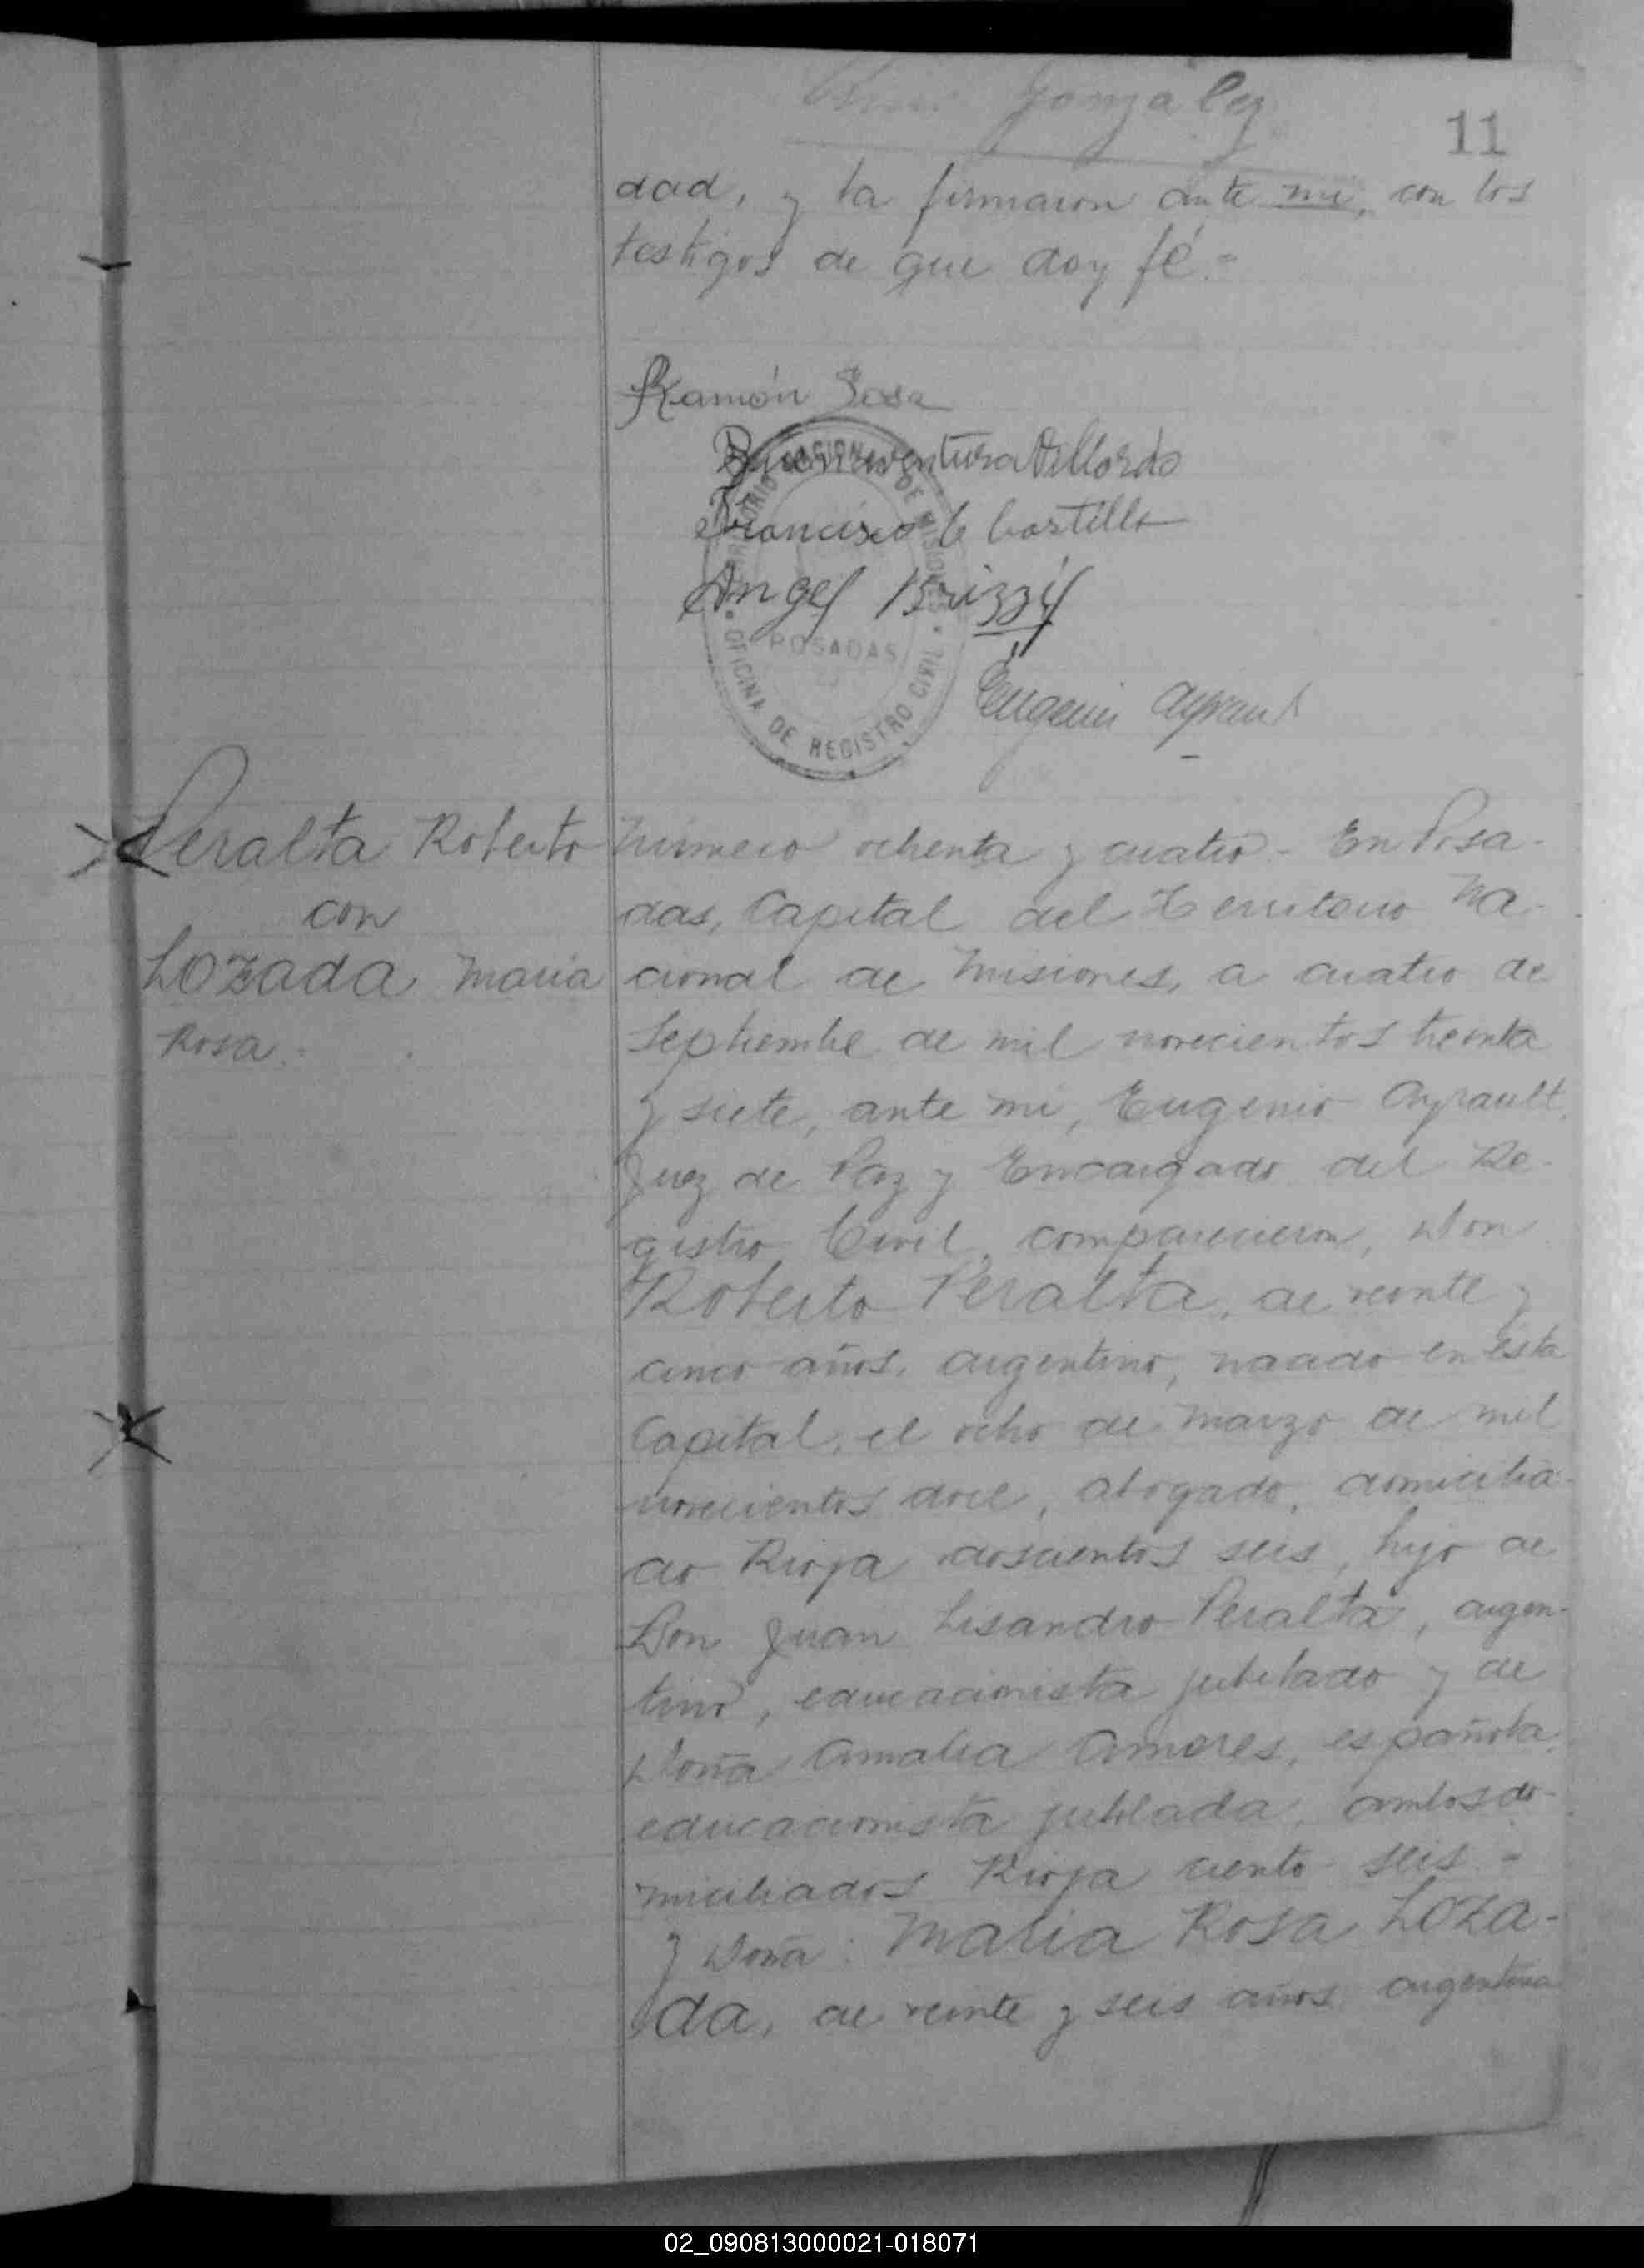 González
11
dad, y la firmaron ante mi, con los
testigos de que doy fé.-
Ramón Sosa
Buenaventura Villordo
Francisco C. Castillo
Angel Brizzi
TERRITORIO NACIONAL DE MISIONES
POSADAS
OFICINA DE REGISTRO CIVIL
Eugenio Ayrault
Peralta Roberto
con
LOZADA Maria
Rosa.-
Número ochenta y cuatro - En Posa-
das, Capital del Territorio Na-
cional de Misiones, a cuatro de
Septiembre de mil novecientos treinta
y siete, ante mi, Eugenio Ayrault
Juez de Paz y Encargado del Re-
gistro Civil, comparecieron, Don
Roberto Peralta, de veinte y
cinco años, argentino, nacido en esta
Capital, el ocho de Marzo de mil
novecientos doce, abogado, domicilia-
do Rioja doscientos seis, hijo de
Don Juan Lisandro Peralta, argen-
tino, educacionista jubilado y de
Doña Amalia Amores, española,
educacionista jubilada, ambos do-
miciliados Rioja ciento seis.-
y Doña: Maria Rosa LOZA-
da, de veinte y seis años, argentina
02_090813000021-018071